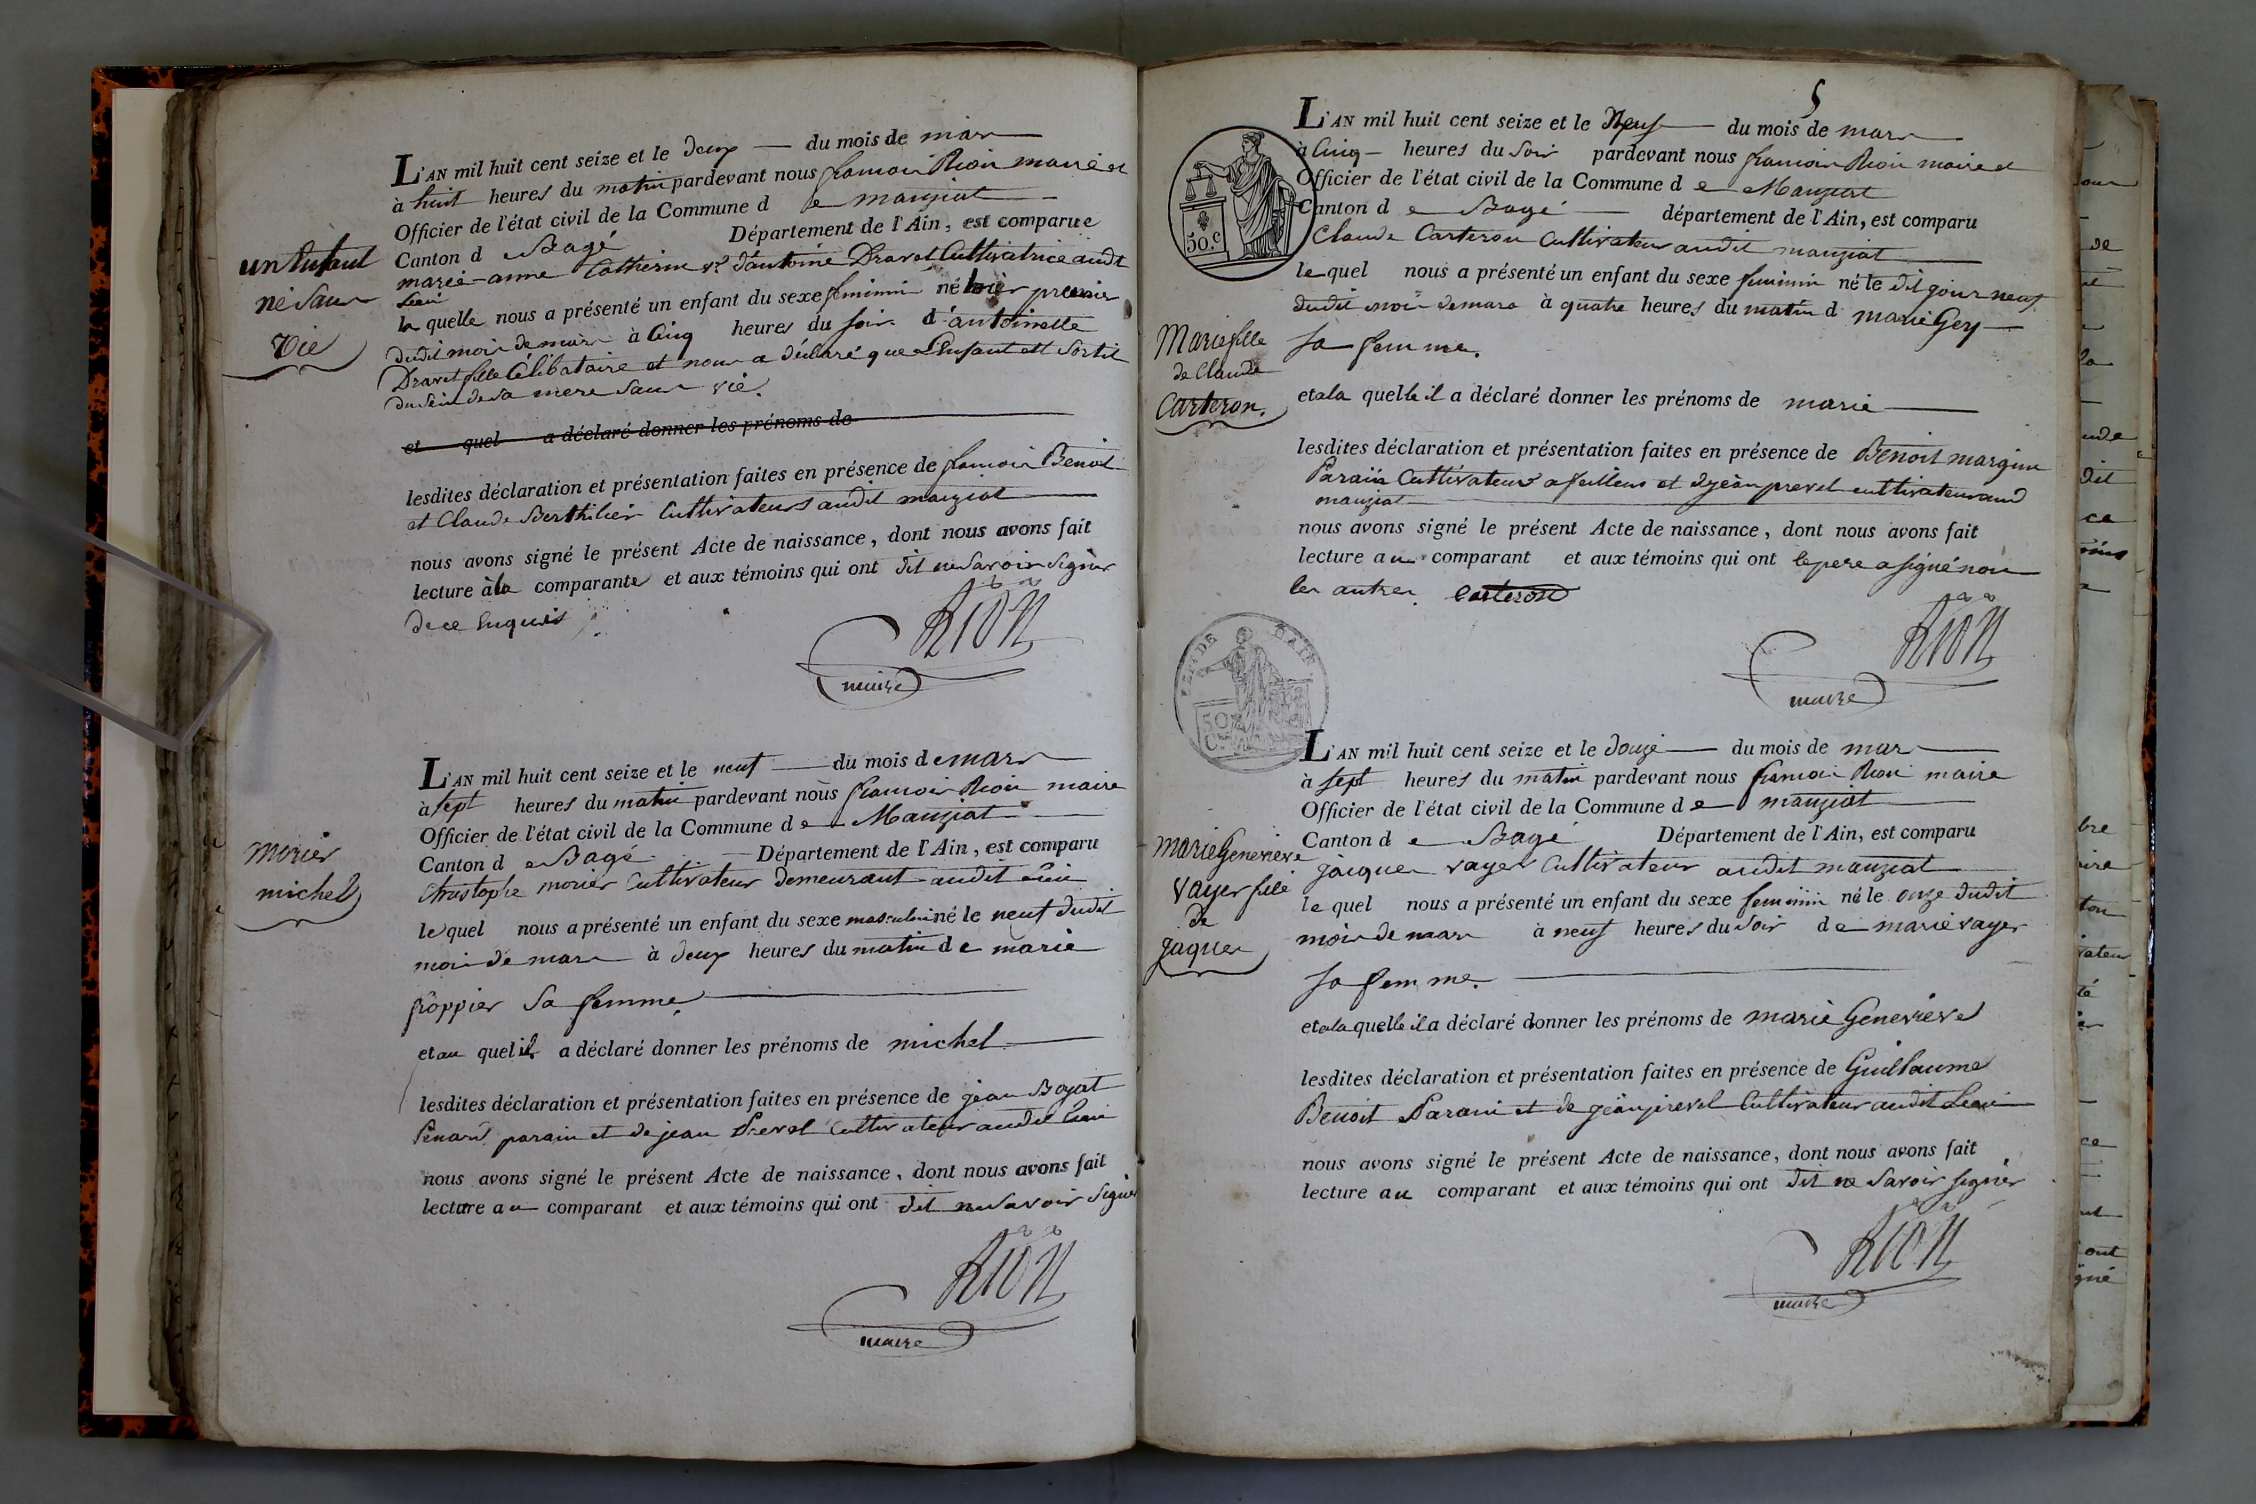 un Enfant
né sans
vie
L'AN mil huit cent seize et le deux du mois de mars
à huit heures du matin pardevant nous francois Rion maire et
Officier de l'état civil de la Commune de manziat
Canton de Bagé Département de l'Ain, est comparue
marie-anne Catherin ve d'antoine Dravet Cultivatrice audt
Lieu
la quelle nous a présenté un enfant du sexe feminin né hier premier
dudit mois de mars à Cinq heures du soir d'antoinette
Dravet fille Célibataire et nous a déclaré que L'Enfant est Sortit
du sein de sa mere sans vie.
et quel a déclaré donner les prénoms de
lesdites déclaration et présentation faites en présence de francois Benoit
et Claude Berthilier Cultivateurs audit manziat
nous avons signé le présent Acte de naissance, dont nous avons fait
lecture à la comparante et aux témoins qui ont dit ne Savoir Signer
de ce Enquis
Rion
maire
morier
michel
L'AN mil huit cent seize et le neuf du mois de mars
à sept heures du matin pardevant nous francois Rion maire
Officier de l'état civil de la Commune de Manziat
Canton de Bagé Département de l'Ain, est comparu
Christophe morier Cultivateur demeurant audit Lieu
le quel nous a présenté un enfant du sexe masculin né le neuf dudit
mois de mars à deux heures du matin de marie
froppier Sa femme
et au quel il a déclaré donner les prénoms de michel
lesdites déclaration et présentation faites en présence de jean Boyat
Penard parain et de jean Prevel Cultivateur audit Lieu
nous avons signé le présent Acte de naissance, dont nous avons fait
lecture au comparant et aux témoins qui ont dit ne Savoir Signer
Rion
maire
5
50.c
Marie fille
de Claude
Carteron.
L'AN mil huit cent seize et le Neuf du mois de mars
à Cinq heures du Soir pardevant nous francois Rion maire et
Officier de l'état civil de la Commune de Manziat
Canton de Bagé département de l'Ain, est comparu
Claude Carteron Cultivateur audit manziat
le quel nous a présenté un enfant du sexe feminin né le dit jour neuf
dudit mois de mars à quatre heures du matin d marie Gey
Sa femme.
et a la quelle il a déclaré donner les prénoms de marie
lesdites déclaration et présentation faites en présence de Benoit margine
Parain Cultivateur a feillens et de jean prevel cultivateur aud
manziat
nous avons signé le présent Acte de naissance, dont nous avons fait
lecture au comparant et aux témoins qui ont le pere a signé non
les autres. Carteron
Rion
maire
DE L'AIN
50
marie Genevieve
vayer fille
de
jaques
L'AN mil huit cent seize et le douze du mois de mars
à sept heures du matin pardevant nous francois Rion maire
Officier de l'état civil de la Commune de manziat
Canton de Bagé Département de l'Ain, est comparu
jaques vayer Cultivateur audit manziat
le quel nous a présenté un enfant du sexe feminin né le onze dudit
mois de mars à neuf heures du soir de marie vayer
Sa femme.
et a la quelle il a déclaré donner les prénoms de marie Genevieve
lesdites déclaration et présentation faites en présence de Guillaume
Benoit Parain et de jean prevel Cultivateur audit Lieu
nous avons signé le présent Acte de naissance, dont nous avons fait
lecture au comparant et aux témoins qui ont dit ne Savoir signer
Rion
maire